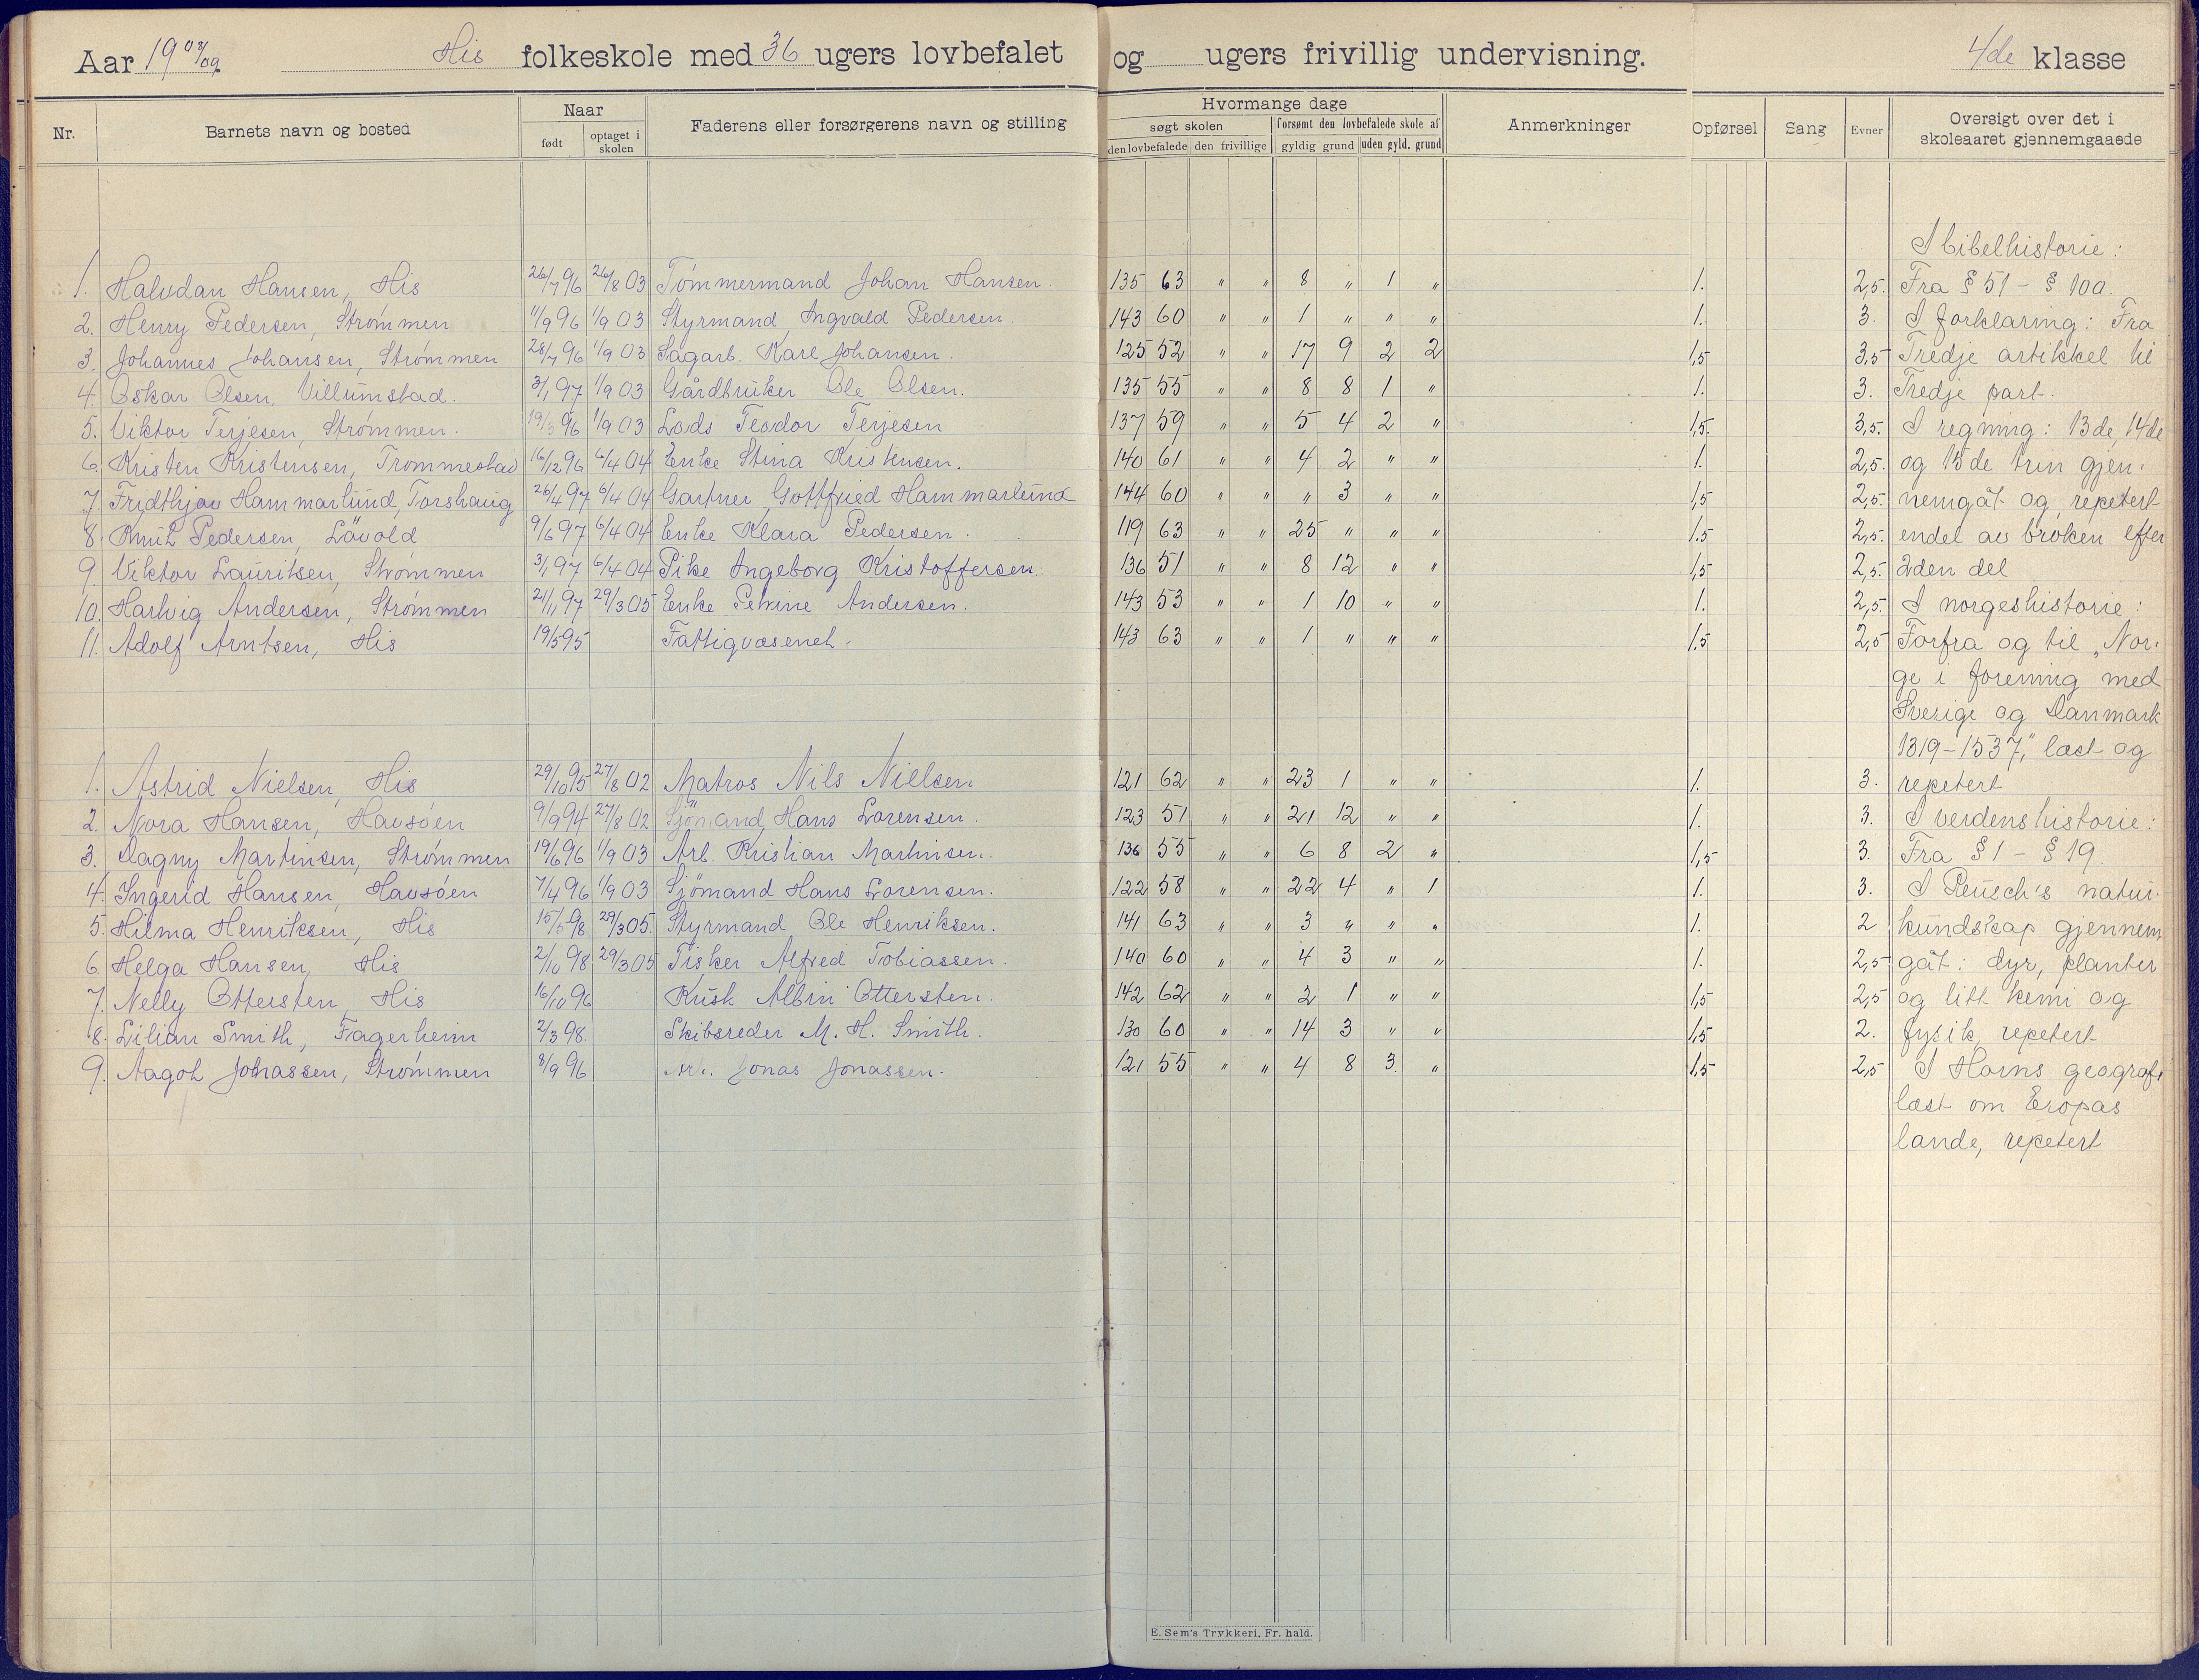 Aar 19 08/09 His folkeskole med 36 ugers lovbefalet og ugers frivillig undervisning. 4de klasse
Nr. Barnets navn og bosted Naar født optaget i skolen Faderens eller forsørgerens navn og stilling Hvormange dage søgt skolen den lovbefalede den frivillige forsømt den lovbefalede skole af gyldig grund uden gyld. grund Anmerkninger Opførsel Sang Evner Oversigt over det i skoleaaret gjennemgaaede
I bibelhistorie:
1. Halvdan Hansen, His 26/7 96 26/8 03 Tømmermand Johan Hansen. 135 63 " " 8 " 1 " 1. 2,5. Fra § 51 - § 100.
2. Henry Pedersen, Strømmen 11/9 96 1/9 03 Styrmand Ingvald Pedersen. 143 60 " " 1 " " " 1. 3. I forklaring: Fra
3. Johannes Johansen, Strømmen 28/7 96 1/9 03 Sagarb. Karl Johansen. 125 52 " " 17 9 2 2 1,5 3,5 Tredje artikkel til
4. Oskar Olsen, Villumstad. 3/1 97 1/9 03 Gårdbruker Ole Olsen. 135 55 " " 8 8 1 " 1. 3. Tredje part.
5. Viktor Terjesen, Strømmen. 19/3 96 1/9 03 Lods Teodor Terjesen 137 59 " " 5 4 2 " 1,5. 3,5. I regning: 13de, 14de
6. Kristen Kristensen, Trommestad 16/12 96 6/4 04 Enke Stina Kristensen. 140 61 " " 4 2 " " 1. 2,5. og 15de trin gjen-
7. Fridthjov Hammarlund, Torshaug 26/4 97 6/4 04 Gartner Gottfried Hammarlund 144 60 " " " 3 " " 1,5 2,5. nemgåt og repetert
8. Knut Pedersen, Løvold 9/6 97 6/4 04 Enke Klara Pedersen. 119 63 " " 25 " " " 1.5 2,5. endel av brøken efter
9. Viktor Lauritsen, Strømmen 3/1 97 6/4 04 Pike Ingeborg Kristoffersen. 136 51 " " 8 12 " " 1,5 2,5. 2den del
10. Hartvig Andersen, Strømmen 21/1 97 29/3 05 Enke Petrine Andersen. 143 53 " " 1 10 " " 1. 2,5. I norgeshistorie:
11. Adolf Arntsen, His 19/5 95 Fattigvæsenet. 143 63 " " 1 " " " 1,5 2,5 Forfra og til „Nor-
ge i forening med
Sverige og Danmark
1319-1537," læst og
1. Astrid Nielsen, His 29/10 95 27/8 02 Matros Nils Nielsen 121 62 " " 23 1 " " 1. 3. repetert
2. Nora Hansen, Havsøen 9/9 94 27/8 02 Sjömand Hans Lorensen. 123 51 " " 21 12 " " 1. 3. I verdenshistorie:
3. Dagny Martinsen, Strømmen 19/6 96 1/9 03 Arb. Kristian Martinsen. 136 55 " " 6 8 2 " 1,5 3. Fra § 1 - § 19.
4. Ingerid Hansen, Havsøen 7/4 96 1/9 03 Sjömand Hans Lorensen. 122 58 " " 22 4 " 1 1. 3. I Reusch's natur-
5. Hilma Henriksen, His 15/5 98 29/3 05. Styrmand Ole Henriksen. 141 63 " " 3 " " " 1. 2 kundskap gjennem
6. Helga Hansen, His 2/10 98 29/3 05 Fisker Alfred Tobiassen. 140 60 " " 4 3 " " 1. 2,5 gåt: dyr, planter
7. Nelly Ottersten, His 16/10 96 Kusk Albin Ottersten. 142 62 " " 2 1 " " 1,5 2,5 og litt kemi og
8. Lilian Smith, Fagerheim 2/3 98. Skibsreder M. H. Smith. 130 60 " " 14 3 " " 1,5 2. fysik, repetert
9. Aagot Johassen, Strømmen 8/9 96 Arb. Jonas Jonassen. 121 55 " " 4 8 3 " 1,5 2,5 I Horns geografi
læst om Eropas
lande, repetert
E. Sem's Trykkeri, Fr. hald.